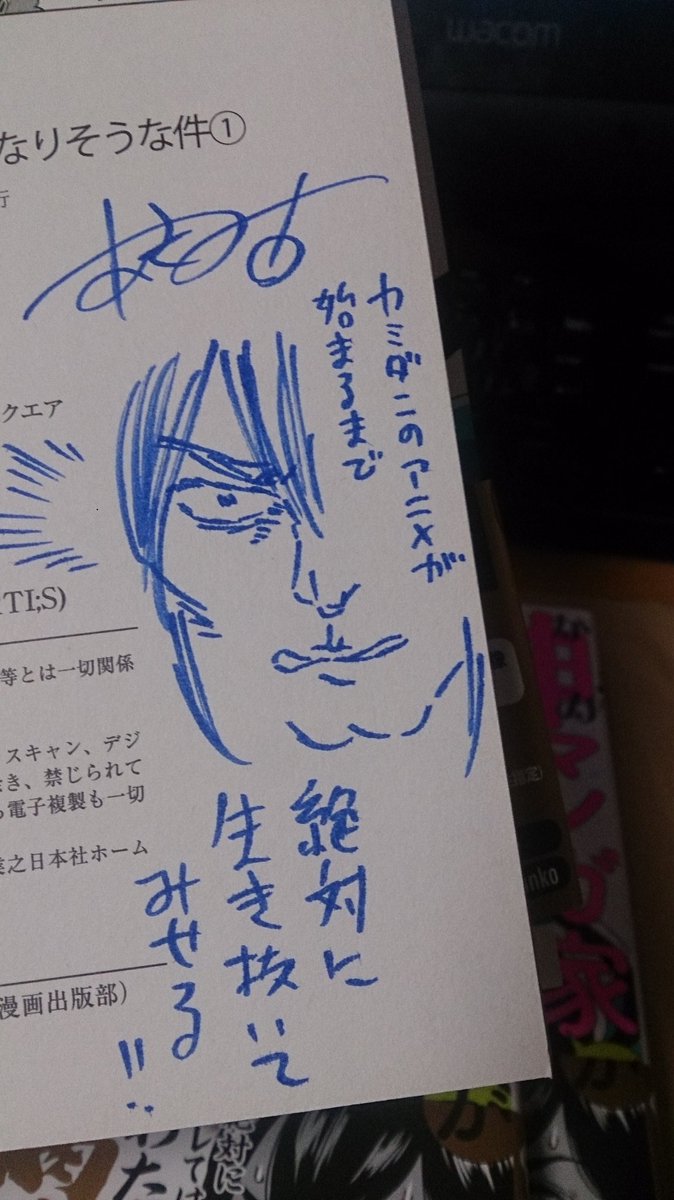 wacom
なりそうな件①
行
カミダーのアニメが
始まるまで
クエア
TI;S)
等とは一切関係
スキャン、デジ
き、禁じられて
電子複製も一切
之日本社ホーム
漫画出版部)
絶対に
生き抜いて
みせる
!!
マンガ家
nko
が
絶対に
しては
わた